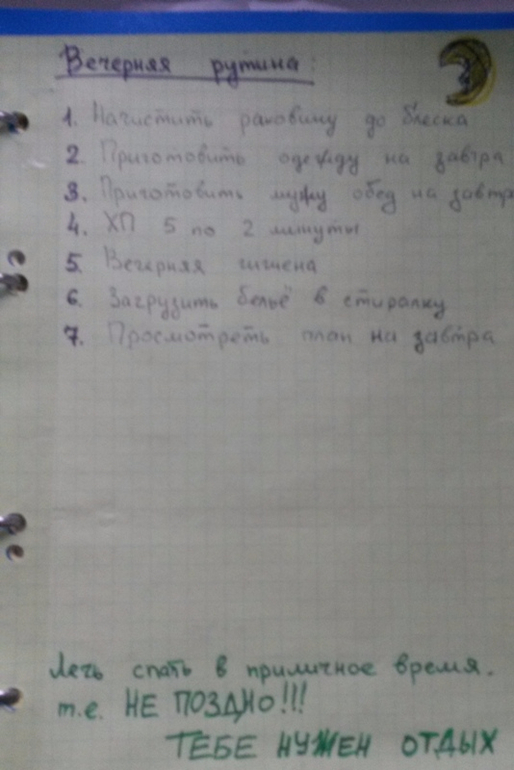 Вечерняя рутина:
1. Начистить раковину до блеска
2. Приготовить одежду на завтра
3. Приготовить мужу обед на завтра
4. ХП 5 по 2 минуты
5. Вечерняя гигиена
6. Загрузить бельё в стиралку
7. Просмотреть план на завтра
Лечь спать в приличное время.
т.е. НЕ ПОЗДНО!!!
ТЕБЕ НУЖЕН ОТДЫХ